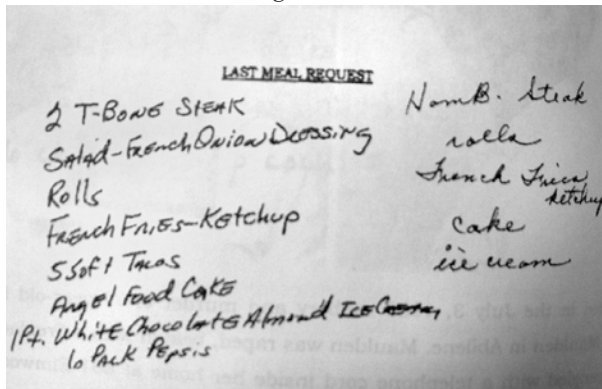 LAST MEAL REQUEST
2 T-BONE STEAK
SALAD-FRENCH ONION DRESSING
ROLLS
FRENCH FRIES-KETCHUP
5 SOFT TACOS
ANGEL FOOD CAKE
1 Pt. WHITE CHOCOLATE ALMOND ICE CREAM
10 PACK PEPSIS
HamB. Steak
rolls
French Fries
ketchup
cake
ice cream